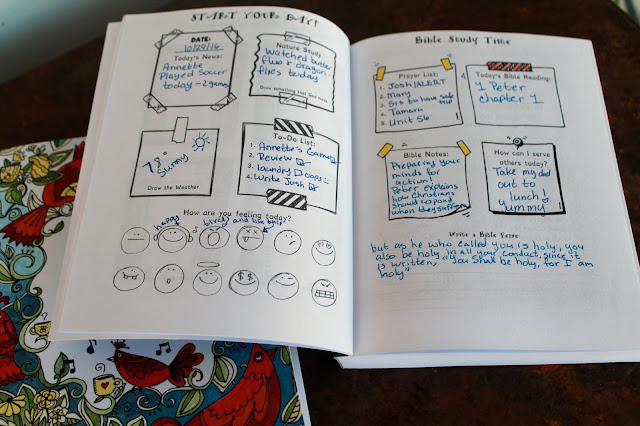 START YOUR DAY!
DATE:
10/29/16
Today's News:
Annette
Played Soccer
today - 2 games
Nature Study
Watched butter
flies & dragon
flies today
Draw something that God made.
78°
Sunny
Draw the Weather
To-Do List:
1. Annette's Games
2. Review
3. laundry oops
4. Write Josh
How are you feeling today?
happy
tired and like this
Bible Study Time
Prayer List:
1. Josh/ALERT
2. Mary
3. Sis to have safe trip
4. Tamara
5. Unit 56
Today's Bible Reading:
1 Peter
chapter 1
Bible Notes:
Preparing your
minds for
action!
Peter explains
how Christians
should respond
when they suffer
How can I serve
others today?
Take my dad
out to
lunch!
yummy
Write a Bible Verse
but as he who called you is holy, you
also be holy in all your conduct, since it
is written, "You shall be holy, for I am
holy"